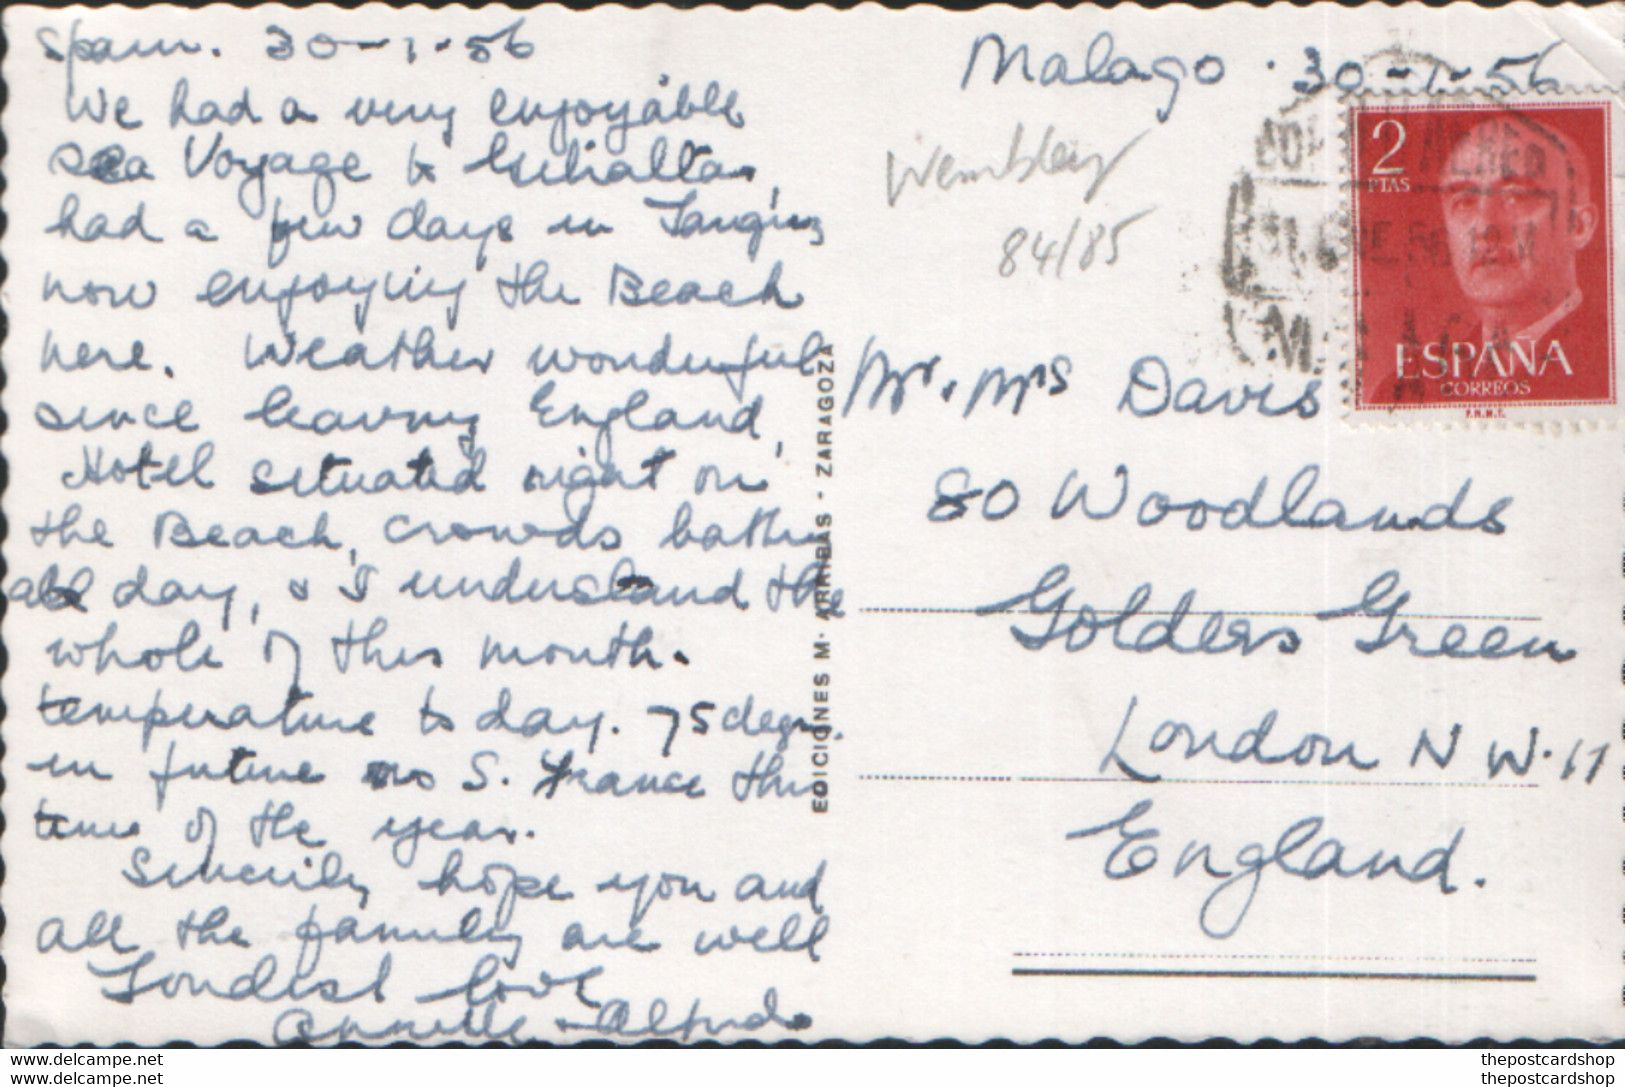 Spain. 30-1-56
We had a very enjoyable
sea Voyage to Gibraltar,
had a few days in Tangiers
now enjoying the Beach
here. Weather wonderful
since leaving England,
Hotel situated right on
the Beach, crowds bathing
all day, & I understand the
whole of this month.
temperature to day. 75 degr.
in future no S. France this
time of the year.
Sincerily hope you and
all the family are well
Fondest love
Annette & Alfred
EDICIONES M. ARRIBAS - ZARAGOZA
Malago. 30-1-56
Wembley
84/85
2
PTAS
ESPAÑA
CORREOS
F.N.M.T.
MALAGA
Mr. Mrs Davis
80 Woodlands
Golders Green
London N W. 11
England.
www.delcampe.net
www.delcampe.net
thepostcardshop
thepostcardshop